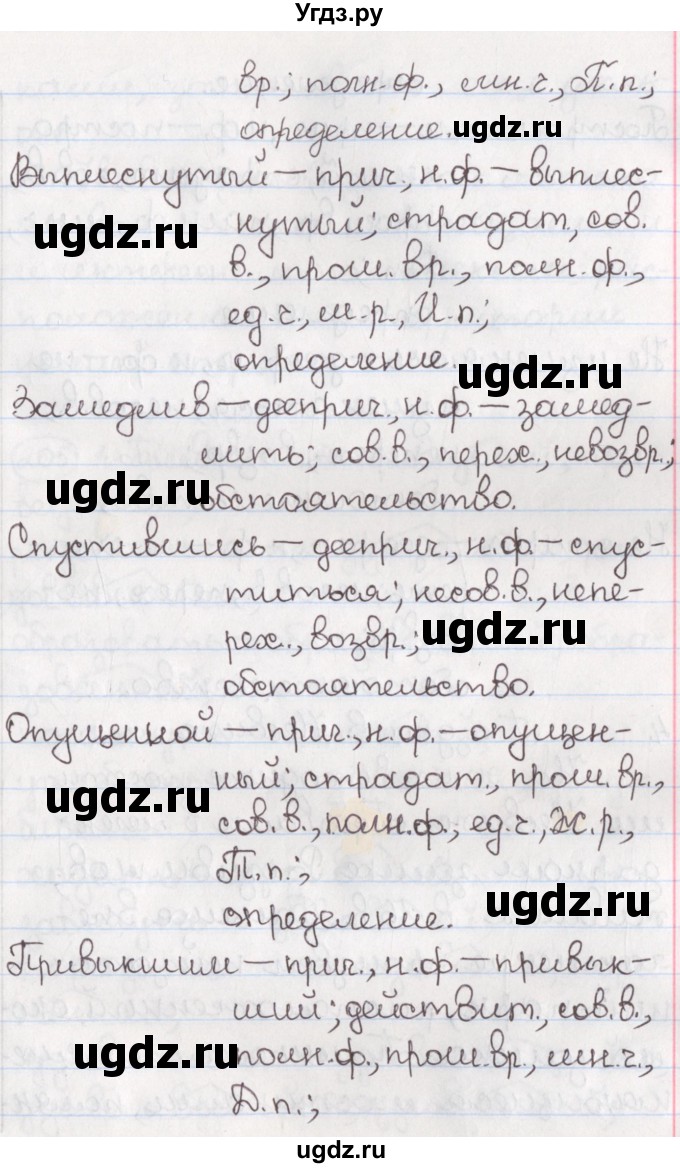 Угдз.ру
вр.; полн.ф., мн.ч., П.п.;
определение. ugdz.ru
Выплеснутый – прич., н.ф. – выплес-
ugdz.ru нутый; страдат., сов.
в., прош.вр., полн.ф.,
ед.ч., м.р., И.п.;
определение. ugdz.ru
Замедлив – дееприч., н.ф. – замед-
лить; сов.в., перех., невозвр.;
ugdz.ru обстоятельство.
Спустившись – дееприч., н.ф. – спус-
титься; несов.в., непе-
рех., возвр.; ugdz.ru
обстоятельство.
Опущенной – прич., н.ф. – опущен-
ugdz.ru ный; страдат., прош.вр.,
сов.в., полн.ф., ед.ч., ж.р.,
Т.п.; ugdz.ru
определение.
Привыкшим – прич., н.ф. – привык-
ший; действит., сов.в.,
ugdz.ru полн.ф., прош.вр., мн.ч.,
Д.п.;
ugdz.ru